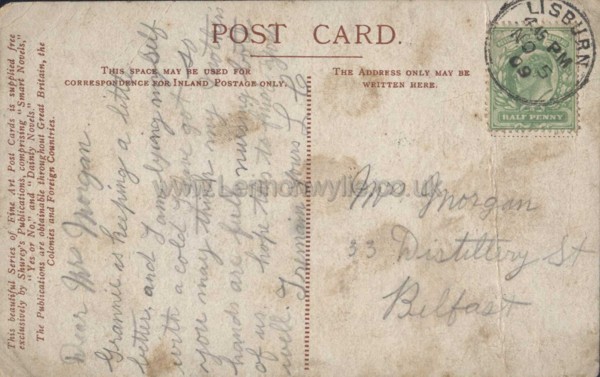 POST CARD.
THIS SPACE MAY BE USED FOR
CORRESPONDENCE FOR INLAND POSTAGE ONLY.
THE ADDRESS ONLY MAY BE
WRITTEN HERE.
LISBURN
4.15 PM
NO 5
09
HALF PENNY
This beautiful Series of Fine Art Post Cards is supplied free
exclusively by Shurey's Publications, comprising "Smart Novels,"
"Yes or No," and "Dainty Novels."
The Publications are obtainable throughout Great Britain, the
Colonies and Foreign Countries.
Dear Mrs Morgan
Grannie is keeping a little
better and I am lying myself
with a cold I have got so
you may think my
hands are full nursing both
of us hope this to find you
well. I remain yours
Mrs Morgan
33 Distillery St
Belfast
www.Lennonwylie.co.uk